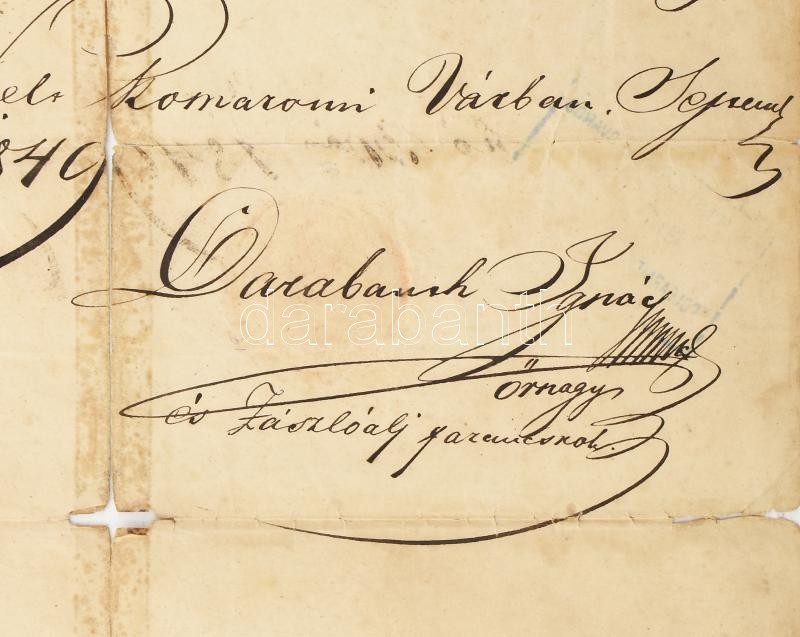 Komaromi Várban. Septemb
849
Darabanth Ignác
őrnagy
és Zászlóalj parancsnok.
darabanth